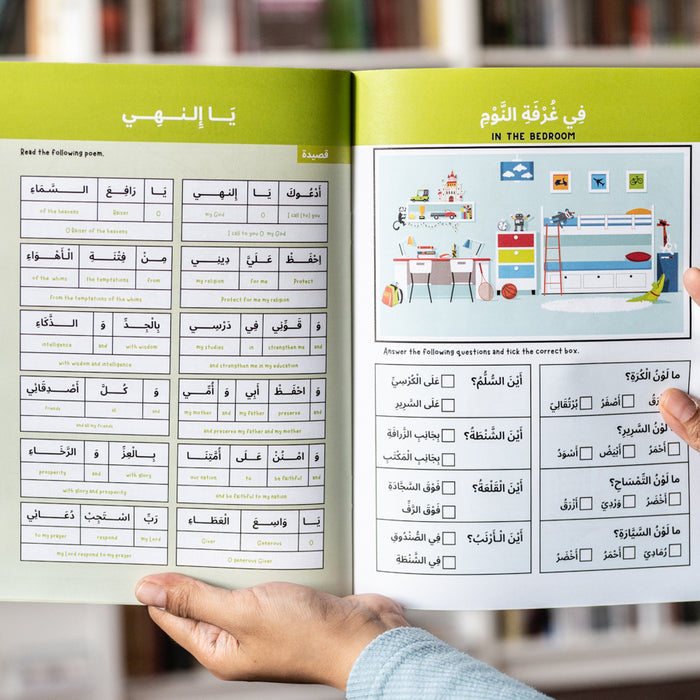 يَا إِلٰهِي
Read the following poem.
قصيدة
أَدْعُوكَ يَا إِلٰهِي
I call (to) you O my God
I call to you O my God
يَا رَافِعَ السَّمَاءِ
O Raiser of the heavens
O Raiser of the heavens
احْفَظْ عَلَيَّ دِينِي
Protect for me my religion
Protect for me my religion
مِنْ فِتْنَةِ الْأَهْوَاءِ
from the temptations of the whims
from the temptations of the whims
وَ قَوِّنِي فِي دَرْسِي
and strengthen me in my studies
and strengthen me in my education
بِالْجِدِّ وَ الذَّكَاءِ
with wisdom and intelligence
with wisdom and intelligence
وَ احْفَظْ أَبِي وَ أُمِّي
and preserve my father and my mother
and preserve my father and my mother
وَ كُلَّ أَصْدِقَائِي
and all friends
and all my friends
وَ امْنُنْ عَلَى أُمَّتِنَا
and be faithful to our nation
and be faithful to my nation
بِالْعِزِّ وَ الرَّخَاءِ
with glory and prosperity
with glory and prosperity
يَا وَاسِعَ الْعَطَاءِ
O Generous Giver
O generous Giver
رَبِّ اسْتَجِبْ دُعَائِي
my Lord respond to my prayer
my Lord respond to my prayer
فِي غُرْفَةِ النَّوْمِ
IN THE BEDROOM
Answer the following questions and tick the correct box.
ما لَوْنُ الْكُرَةِ؟
أَصْفَرُ بُرْتُقَالِيٌّ
لَوْنُ السَّرِيرِ؟
أَحْمَرُ أَبْيَضُ أَسْوَدُ
ما لَوْنُ التِّمْسَاحِ؟
أَخْضَرُ وَرْدِيٌّ أَزْرَقُ
ما لَوْنُ السَّيَّارَةِ؟
رُمَادِيٌّ أَحْمَرُ أَخْضَرُ
أَيْنَ السُّلَّمُ؟ عَلَى الْكُرْسِيِّ
عَلَى السَّرِيرِ
أَيْنَ الشَّنْطَةُ؟ بِجَانِبِ الدَّرَّاقَةِ
بِجَانِبِ الْمَكْتَبِ
أَيْنَ الْقَلْعَةُ؟ فَوْقَ السَّجَّادَةِ
فَوْقَ الرَّفِّ
أَيْنَ الْأَرْنَبُ؟ فِي الصُّنْدُوقِ
فِي الشَّنْطَةِ